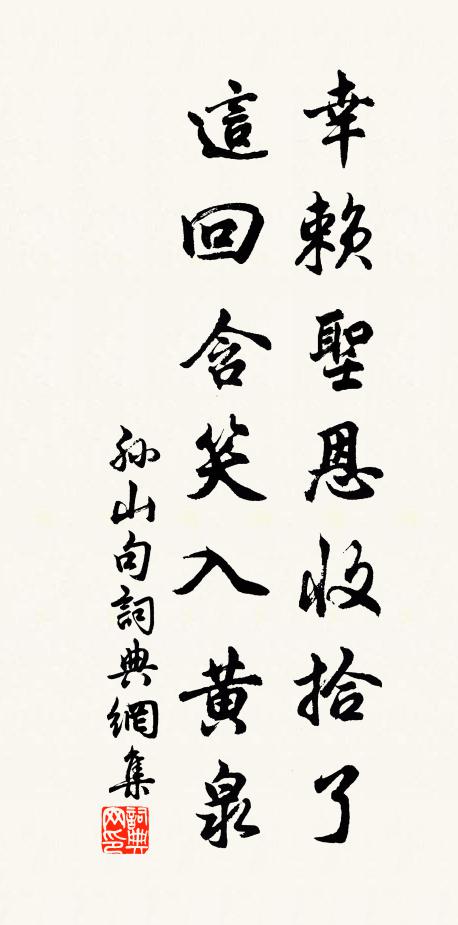 幸賴聖恩收拾了
這回含笑入黄泉
孫山句詞典網集
詞典网印